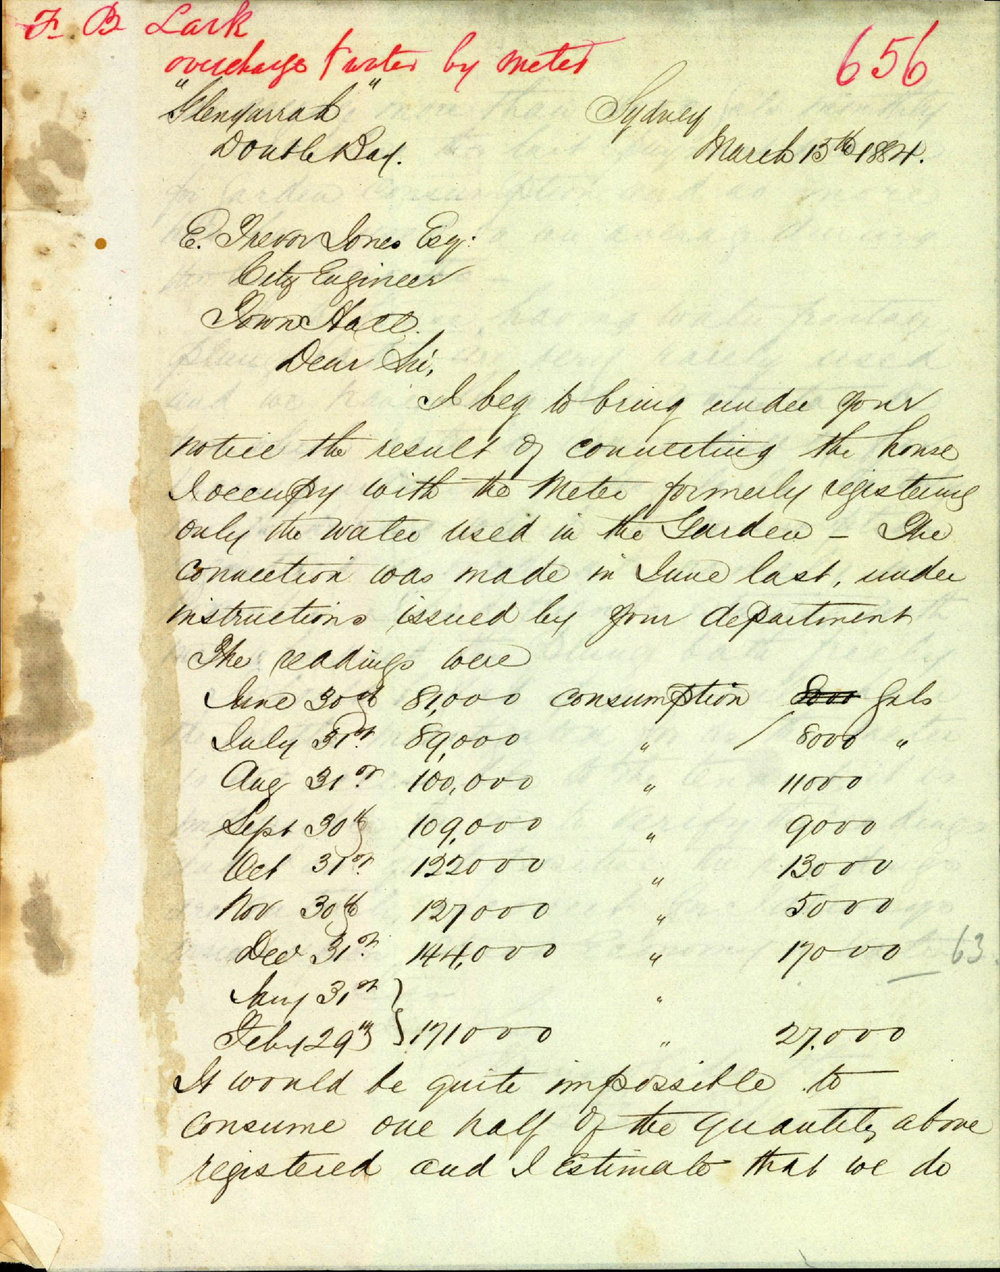 F. B Lark
overcharge f water by meter
656
"Glenyarrah"
Sydney
Double Bay.
March 13th 1884.
E. Trevor Jones Esq:
City Engineer
Town Hall.
Dear Sir,
I beg to bring under your
notice the result of connecting the house
I occupy with the Meter formerly registering
only the water used in the Garden – The
connection was made in June last, under
instructions issued by your department
The readings were
June 30th 81,000 consumption 8000 Gals
July 31st 89,000 " / 8000 "
Aug 31st 100,000 " 11000
Sept 30th 109,000 " 9000
Oct 31st 122000 " 13000
Nov 30th 127000 " 5000
Dec 31st 144,000 " 17000 63
Jany 31st } "
Feby 29th } 171000 " 27,000
It would be quite impossible to
consume one half of the quantity above
registered and I estimate that we do